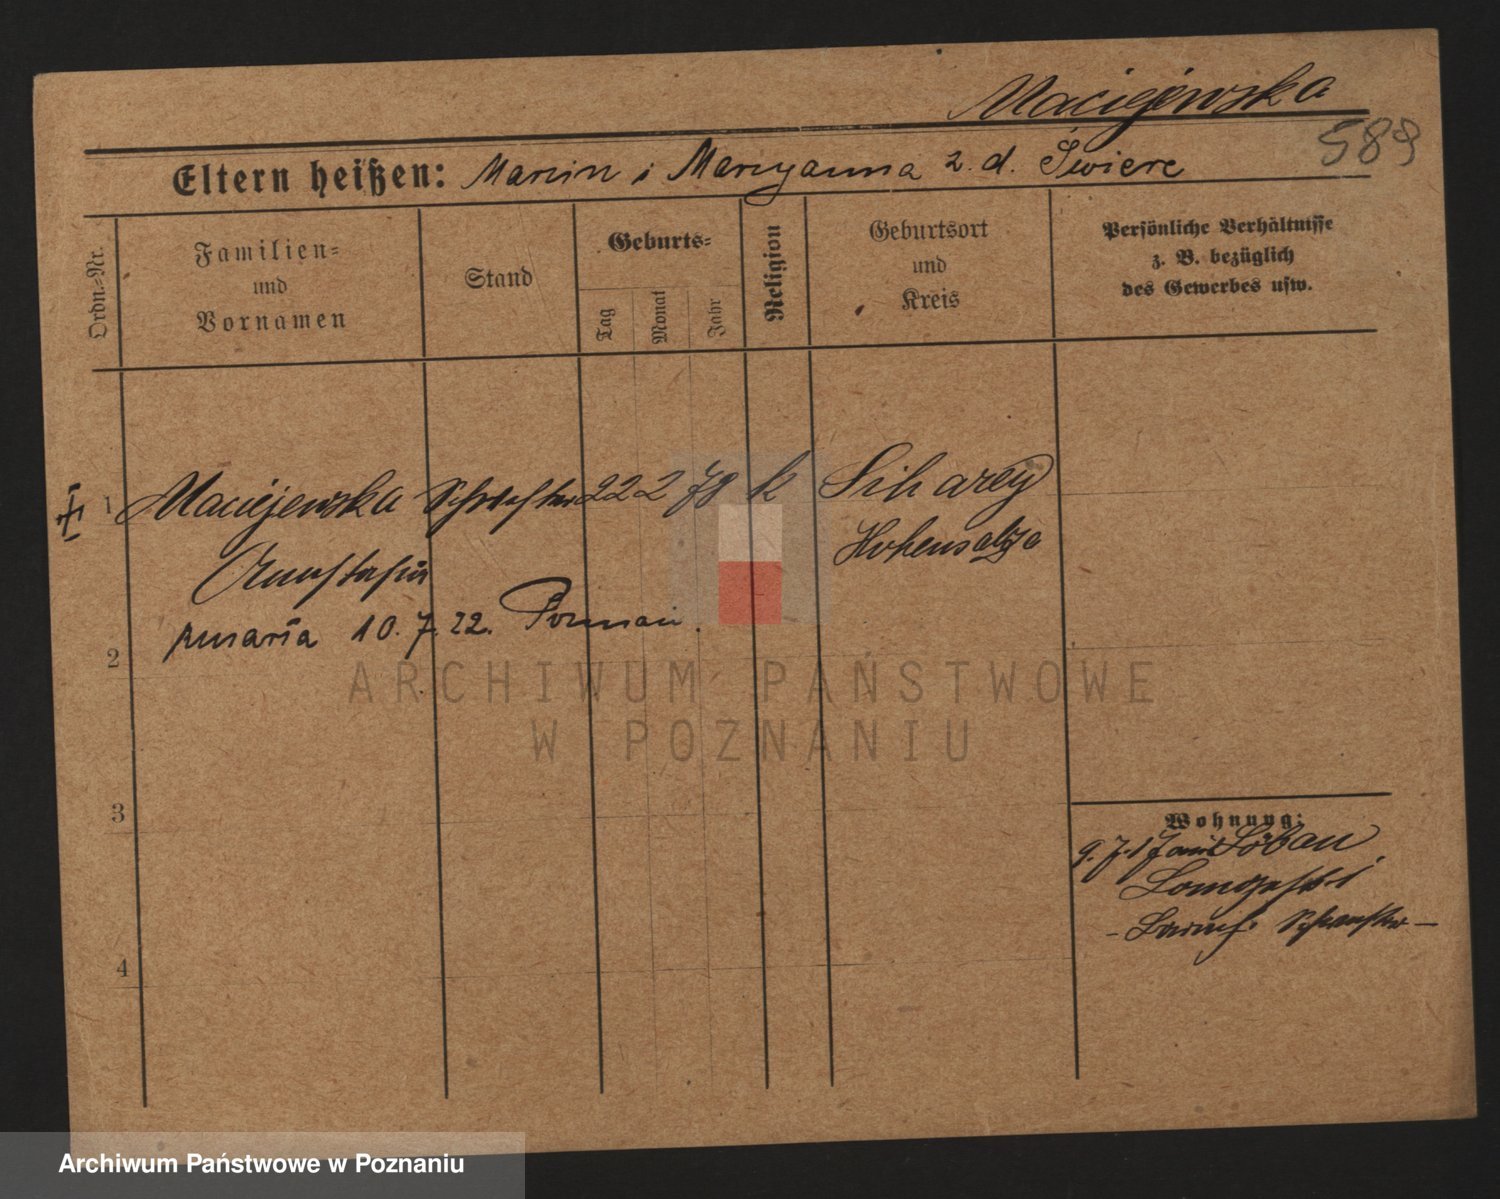 Maciejewska
588
Eltern heißen: Marcin i Maryanna z. d. Świerc
Ordn.-Nr.
Familien-
und
Vornamen
Stand
Geburts-
Tag
Monat
Jahr
Religion
Geburtsort
und
Kreis
Persönliche Verhältnisse
z. B. bezüglich
des Gewerbes usw.
1 Maciejewska Schwester 22 2 78 k
Hohensalza
Anastasia
zmarła 10. 7. 22. Poznań.
2
3
4
Wohnung:
Löbau
ARCHIWUM PAŃSTWOWE
W POZNANIU
Archiwum Państwowe w Poznaniu